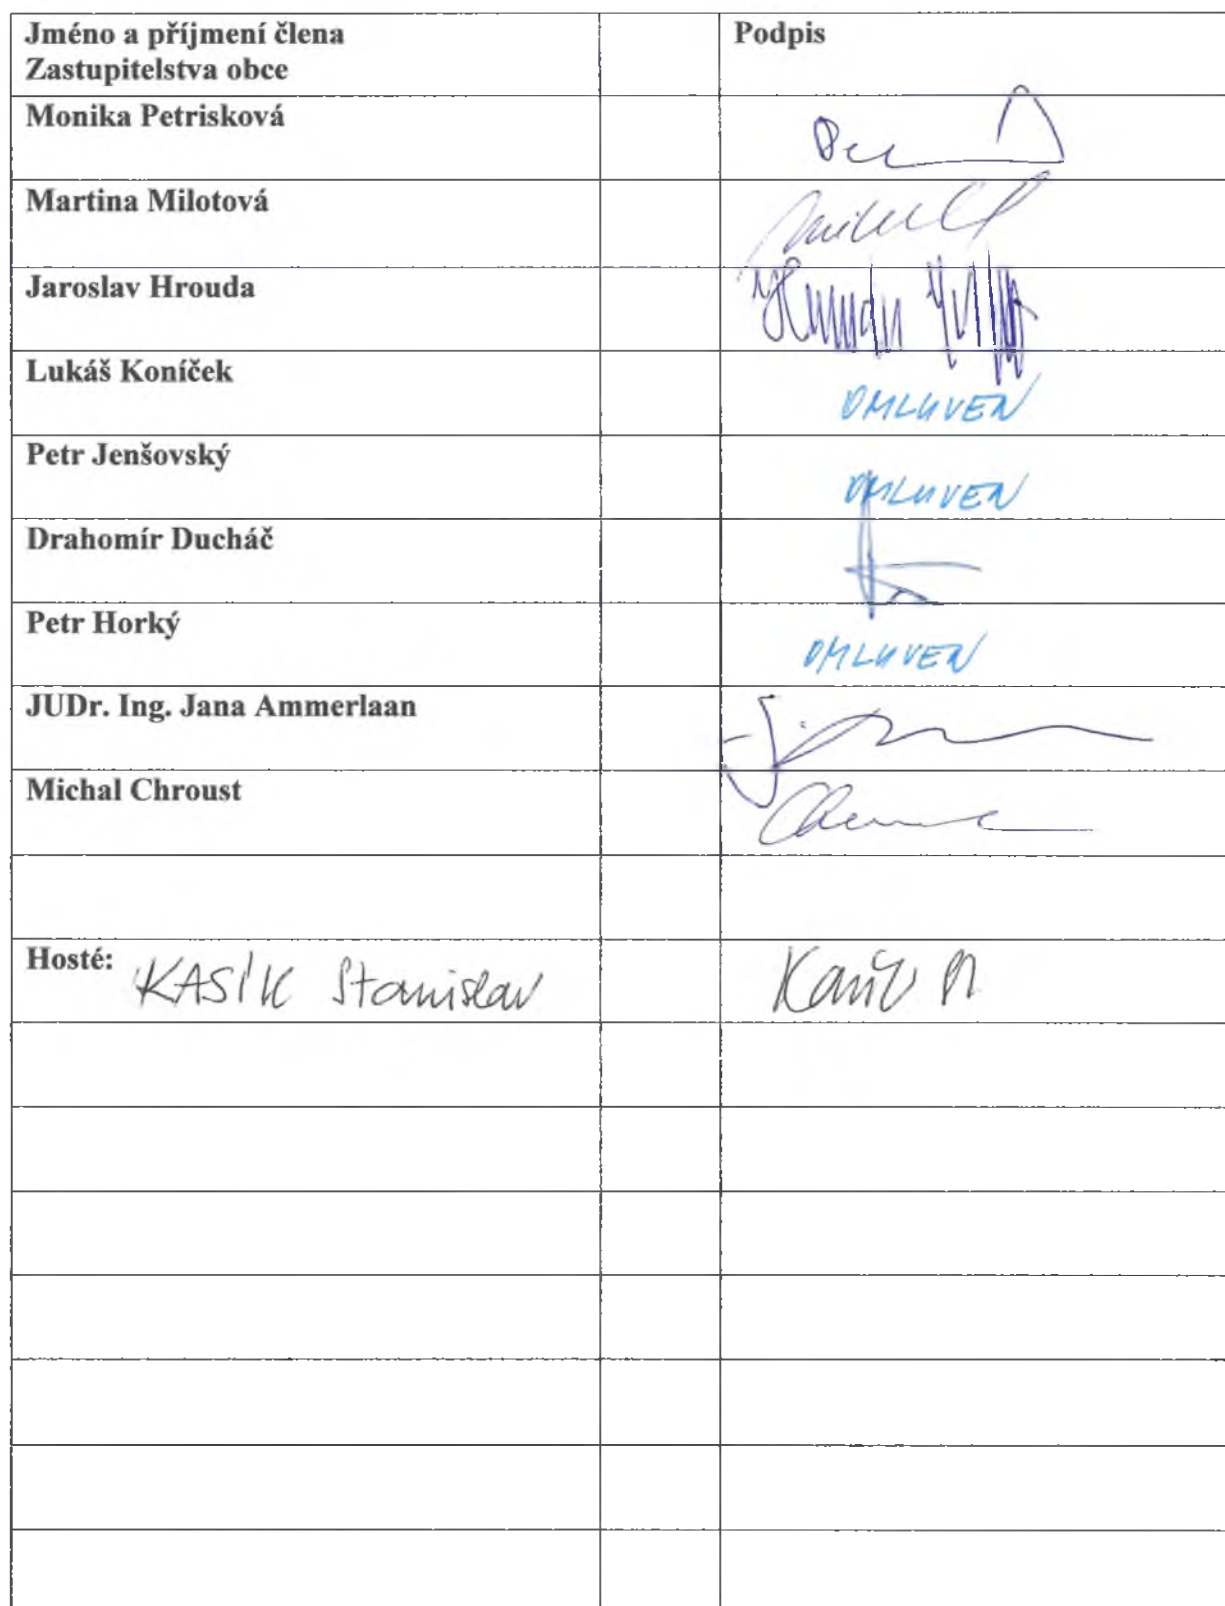 Jméno a příjmení člena
Zastupitelstva obce
Podpis
Monika Petrisková
Martina Milotová
Jaroslav Hrouda
Lukáš Koníček
OMLUVEN
Petr Jenšovský
OMLUVEN
Drahomír Ducháč
Petr Horký
OMLUVEN
JUDr. Ing. Jana Ammerlaan
Michal Chroust
Hosté: KASÍK Stanislav